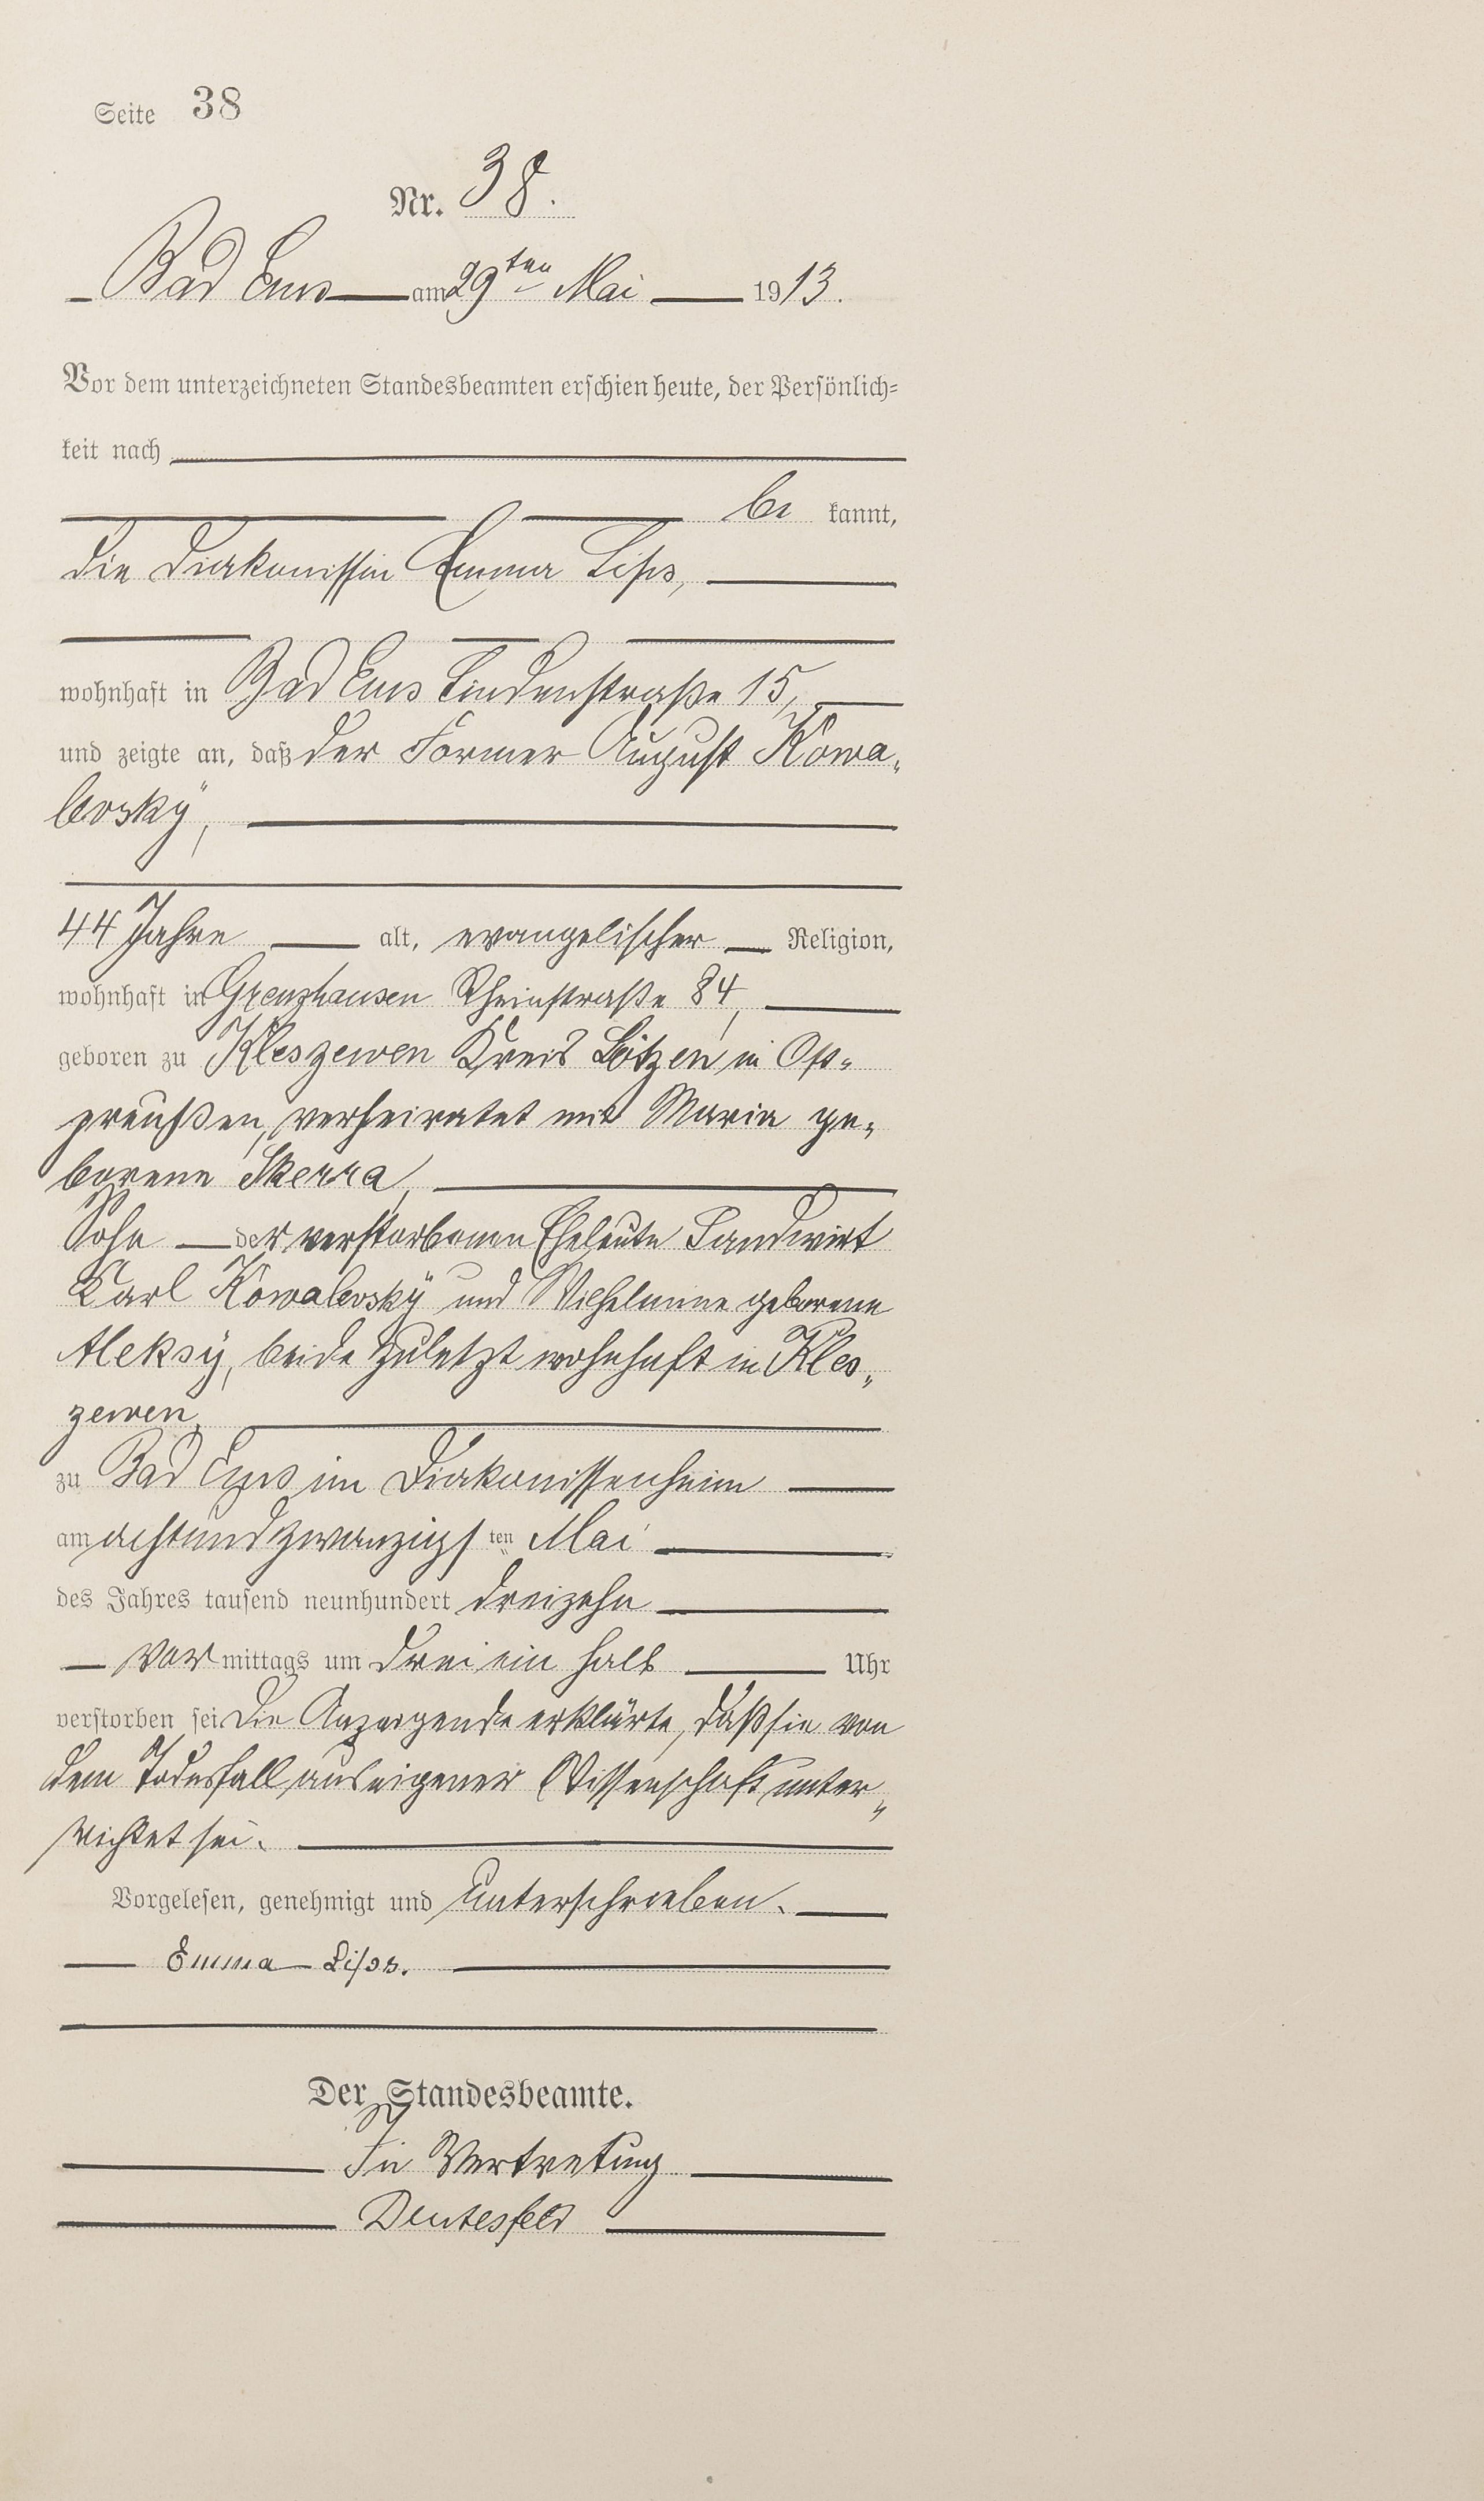 Seite 38
Nr. 38.
Bad Ems am 29ten Mai 1913.
Vor dem unterzeichneten Standesbeamten erschien heute, der Persönlich-
keit nach
be kannt,
die Diakonissin Emma Lips,
wohnhaft in Bad Ems Lindenstraße 15,
und zeigte an, daß der Former August Kowa-
levsky,
44 Jahre alt, evangelischer Religion,
wohnhaft in Grenzhausen Rheinstraße 84,
geboren zu Kleszewen Kreis Lötzen in Ost-
preußen, verheiratet mit Maria ge-
borene Skerra,
Sohn der verstorbenen Eheleute Landwirt
Karl Kowalevsky und Wilhelmine geborene
Aleksy, beide zuletzt wohnhaft in Kles-
zewen,
zu Bad Ems im Diakonissenheim
am achtundzwanzigs ten Mai
des Jahres tausend neunhundert dreizehn
Vor mittags um drei ein halb Uhr
verstorben sei. Die Anzeigende erklärte, daß sie von
dem Todesfall aus eigener Wissenschaft unter-
richtet sei.
Vorgelesen, genehmigt und unterschrieben.
Emma Lips.
Der Standesbeamte.
In Vertretung